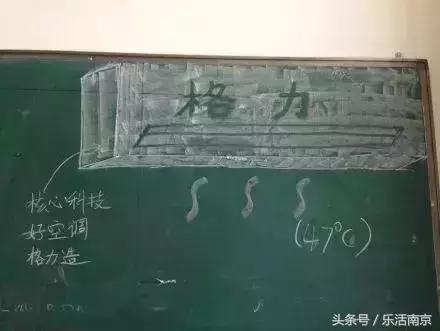 格力
核心科技
好空调
格力造
(47℃)
头条号 / 乐活南京